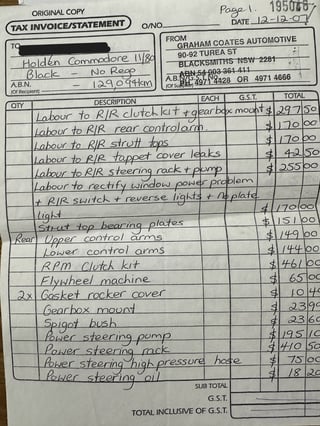 ORIGINAL COPY
Page 1. 195046
TAX INVOICE/STATEMENT O/NO DATE 12-12-07
TO
Holden Commodore 11/80
Black - No Rego
A.B.N. - 129,094km
(Of Recipient)
FROM
GRAHAM COATES AUTOMOTIVE
90-92 TUREA ST
BLACKSMITHS NSW 2281
ABN 54 003 361 411
PH 4971 4428 OR 4971 4666
QTY DESCRIPTION EACH G.S.T. TOTAL
Labour to R/R clutch kit + gearbox mount $ 297 50
Labour to R/R rear control arm. $ 170 00
Labour to R/R strutt tops $ 170 00
Labour to R/R tappet cover leaks $ 42 50
Labour to R/R steering rack + pump $ 255 00
Labour to rectify window power problem
+ R/R switch + reverse lights + No plate
light $ 170 00
Strut top bearing plates $ 151 00
Rear Upper control arms $ 149 00
Lower control arms $ 144 00
RPM Clutch kit $ 461 00
Flywheel machine $ 65 00
2x Gasket rocker cover $ 10
Gearbox mount $ 23
Spigot bush $ 23
Power steering pump $ 195 10
Power steering rack $ 410 50
Power steering high pressure hose $ 75 00
Power steering oil $ 18 20
SUB TOTAL
G.S.T.
TOTAL INCLUSIVE OF G.S.T.